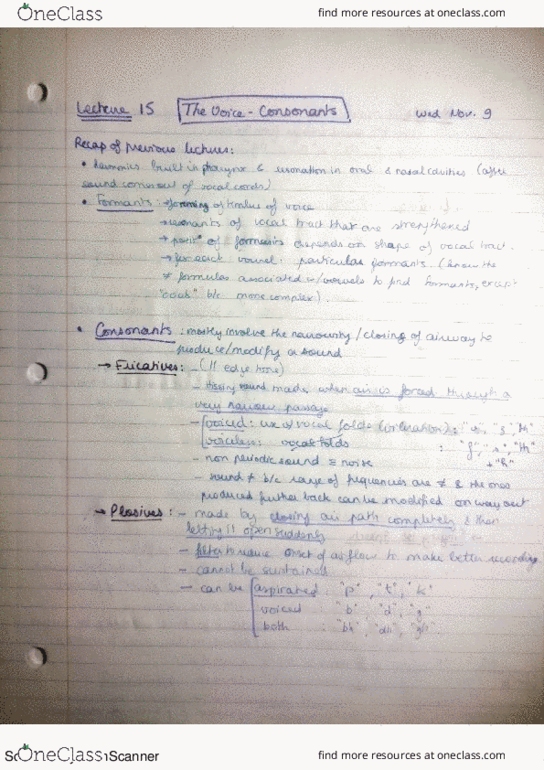 OneClass find more resources at oneclass.com
Lecture 15 The Voice - Consonants Wed Nov. 9
Recap of previous lectures:
• harmonics built in pharynx & resonation in oral & nasal cavities (after
sound comes out of vocal cords)
• Formants: → forming of timbre of voice
→ resonants of vocal tract that are strengthened
→ of formants depends on shape of vocal tract.
→ for each vowel: particular formants. (know the
≠ formulas associated w/vowels to find formants, except
"oooh" b/c more complex).
• Consonants: mostly involve the narrowing/closing of airway to
produce/modify a sound
→ Fricatives: - (11 edge tone)
- hissing sound made when air is forced through a
very narrow passage
- voiced: use of vocal folds (vibration):
voiceless: vocal folds : "f", "Th"
+ "h"
- non periodic sound = noise
- sound ≠ b/c range of frequencies are ≠ & the ones
produced further back can be modified on way out
→ Plosives: - made by closing air path completely & then
letting it open suddenly
- onset of airflow to make better recording
- cannot be sustained
- can be aspirated: "p", "t", "k"
voiced "b" "d", "g"
both : "bh", "dh", "gh"
OneClass Scanner find more resources at oneclass.com